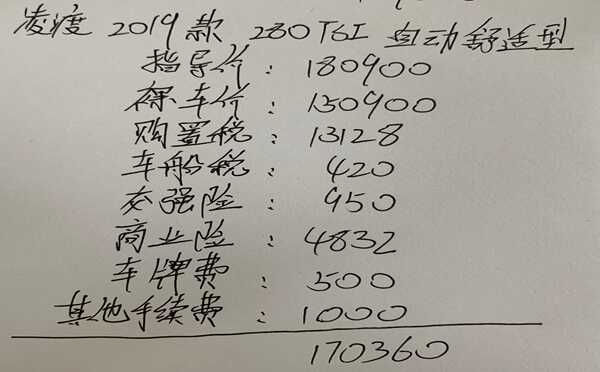 凌渡 2019款 280TSI 自动舒适型
指导价：180900
裸车价：150900
购置税：13128
车船税：420
交强险：950
商业险：4832
车牌费：500
其他手续费：1000
170360